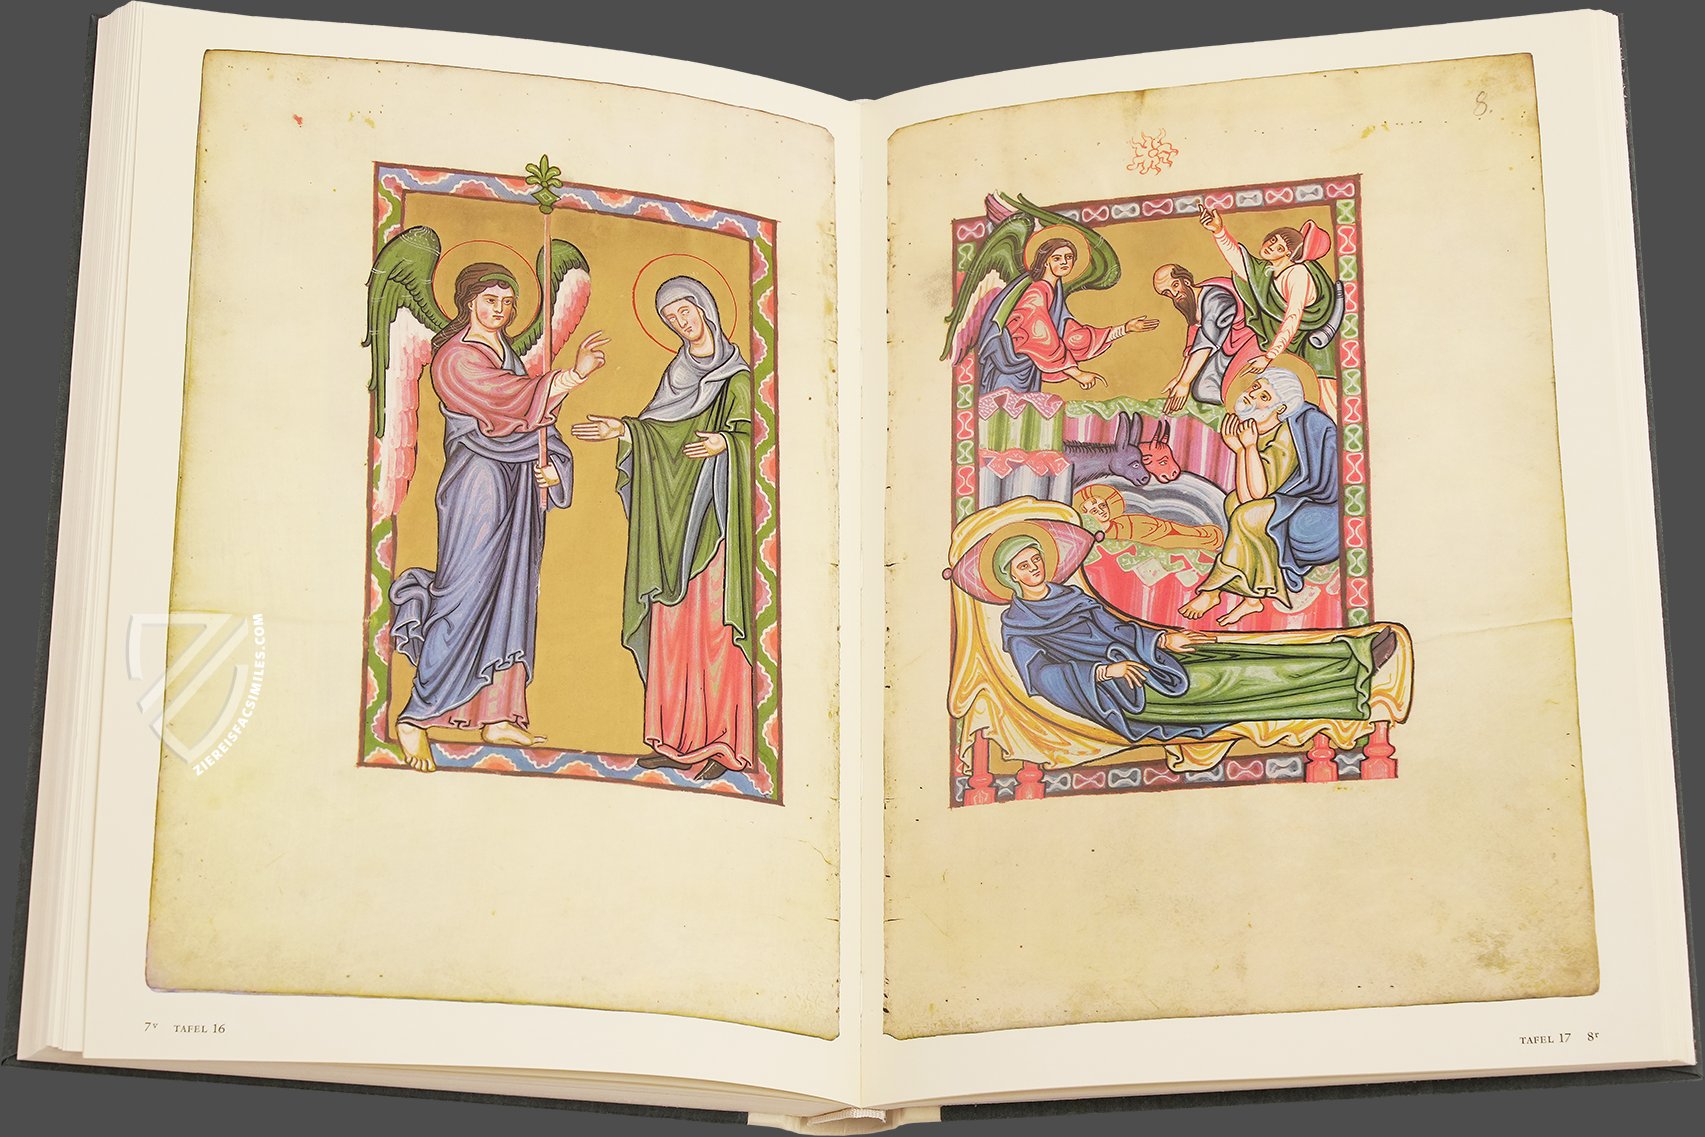 8.
ZIEREISFACSIMILES.COM
7v TAFEL 16
TAFEL 17 8r